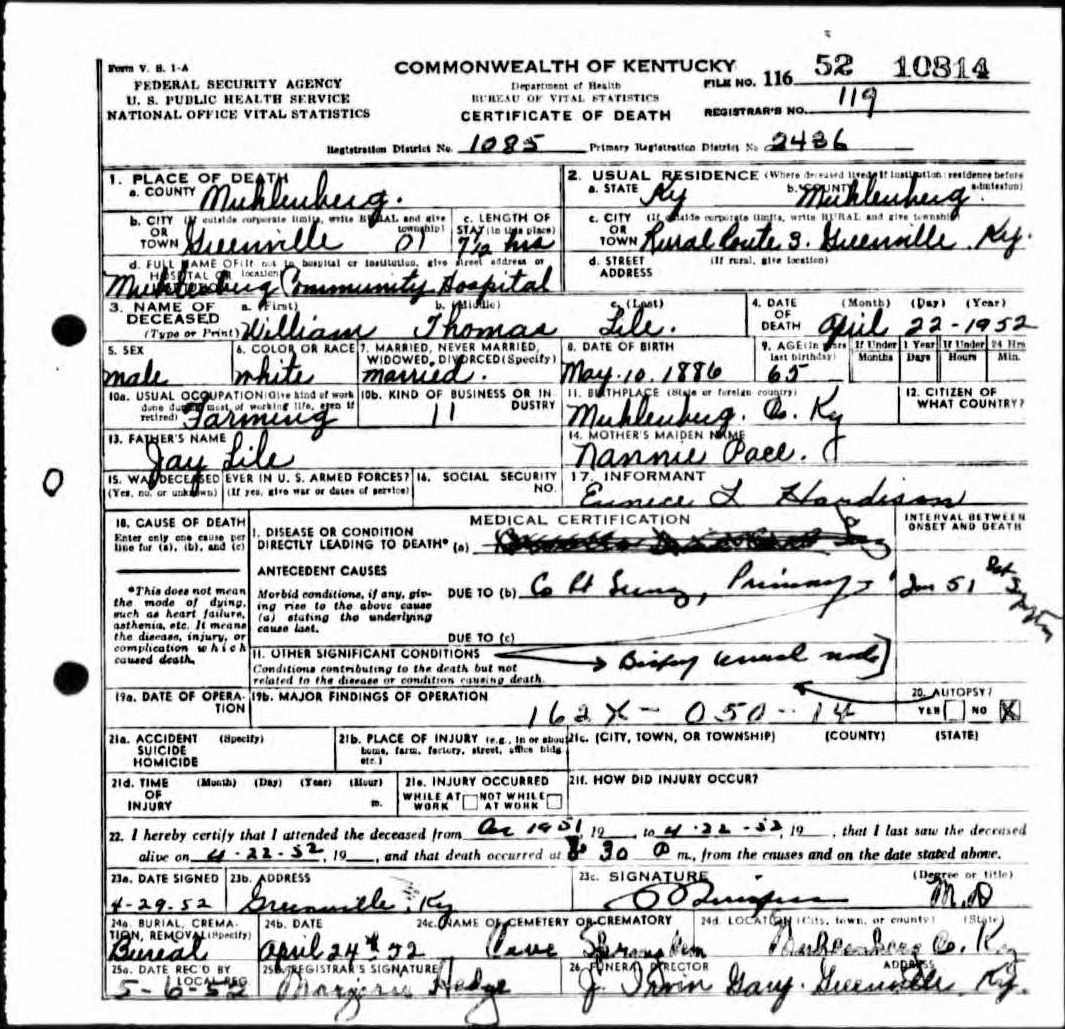 Form V. S. 1-A
COMMONWEALTH OF KENTUCKY
FILE NO. 116 52 10814
FEDERAL SECURITY AGENCY
U. S. PUBLIC HEALTH SERVICE
NATIONAL OFFICE VITAL STATISTICS
Department of Health
BUREAU OF VITAL STATISTICS
CERTIFICATE OF DEATH
REGISTRAR'S NO. 119
Registration District No. 1085 Primary Registration District No 2436
1. PLACE OF DEATH
a. COUNTY Muhlenberg.
2. USUAL RESIDENCE (Where deceased lived. If institution: residence before admission)
a. STATE Ky b. COUNTY Muhlenberg
b. CITY (If outside corporate limits, write RURAL and give township)
OR TOWN Greenville 01
c. LENGTH OF STAY (in this place) 7 1/2 hrs
c. CITY (If outside corporate limits, write RURAL and give township)
OR TOWN Rural Route 3. Greenville Ky.
d. FULL NAME OF (If not in hospital or institution, give street address or location)
HOSPITAL OR
Muhlenberg Community Hospital
d. STREET ADDRESS (If rural, give location)
3. NAME OF DECEASED (Type or Print)
a. (First) b. (Middle) c. (Last)
William Thomas Lile.
4. DATE OF DEATH (Month) (Day) (Year)
April 22-1952
5. SEX
male
6. COLOR OR RACE
white
7. MARRIED, NEVER MARRIED, WIDOWED, DIVORCED (Specify)
married.
8. DATE OF BIRTH
May. 10. 1886
9. AGE (In years last birthday)
65
If Under 1 Year
Months Days
If Under 24 Hrs
Hours Min.
10a. USUAL OCCUPATION (Give kind of work done during most of working life, even if retired)
Farming
10b. KIND OF BUSINESS OR INDUSTRY
11
11. BIRTHPLACE (State or foreign country)
Muhlenberg. Co. Ky
12. CITIZEN OF WHAT COUNTRY?
13. FATHER'S NAME
Jay Lile
14. MOTHER'S MAIDEN NAME
Nannie Pace.
15. WAS DECEASED EVER IN U. S. ARMED FORCES?
(Yes, no, or unknown) (If yes, give war or dates of service)
16. SOCIAL SECURITY NO.
17. INFORMANT
Eunice L Hardison
18. CAUSE OF DEATH
Enter only one cause per line for (a), (b), and (c)
*This does not mean the mode of dying, such as heart failure, asthenia, etc. It means the disease, injury, or complication which caused death.
MEDICAL CERTIFICATION
INTERVAL BETWEEN ONSET AND DEATH
I. DISEASE OR CONDITION DIRECTLY LEADING TO DEATH* (a)
ANTECEDENT CAUSES
Morbid conditions, if any, giving rise to the above cause (a) stating the underlying cause last.
DUE TO (b) Ca Rt Lung, Primary
Jan 51
DUE TO (c)
II. OTHER SIGNIFICANT CONDITIONS
Conditions contributing to the death but not related to the disease or condition causing death.
19a. DATE OF OPERATION
19b. MAJOR FINDINGS OF OPERATION
162X - 050 - 14
20. AUTOPSY?
YES NO X
21a. ACCIDENT SUICIDE HOMICIDE (Specify)
21b. PLACE OF INJURY (e.g., in or about home, farm, factory, street, office bldg etc.)
21c. (CITY, TOWN, OR TOWNSHIP) (COUNTY) (STATE)
21d. TIME OF INJURY (Month) (Day) (Year) (Hour) m.
21e. INJURY OCCURRED
WHILE AT WORK NOT WHILE AT WORK
21f. HOW DID INJURY OCCUR?
22. I hereby certify that I attended the deceased from 1951, 19 , to 4-22-52, 19 , that I last saw the deceased
alive on 4-22-52, 19 , and that death occurred at 30 P m., from the causes and on the date stated above.
23a. DATE SIGNED
4-29-52
23b. ADDRESS
Greenville, Ky
23c. SIGNATURE (Degree or title)
M. D
24a. BURIAL, CREMATION, REMOVAL (Specify)
Bureal
24b. DATE
April 24th 52
24c. NAME OF CEMETERY OR CREMATORY
Cave
24d. LOCATION (City, town, or county) (State)
Muhlenberg Co. Ky
25a. DATE REC'D BY LOCAL REG.
5-6-52
25b. REGISTRAR'S SIGNATURE
Marjorie Hedge
26. FUNERAL DIRECTOR ADDRESS
J. Irvin Gary. Greenville, Ky.